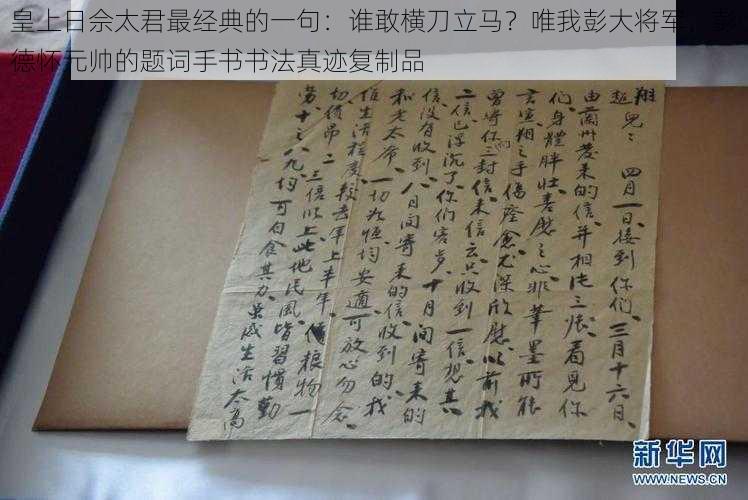 皇上日佘太君最经典的一句：谁敢横刀立马？唯我彭大将军，彭
德怀元帅的题词手书书法真迹复制品
翔
超兒：四月一日、接到你们、三月十六日、
由蘭州发来的信、并相片三张、看见你
们、身體胖壮、喜慰之心、非筆墨所能
言宣、翔之手傷痊愈、尤深欣慰、以前我
曾寄你们三封信、来信云只收到一信、想其
二信已浮沉了、你们客岁、十月间寄来的
信没有收到、八月间寄来的信收到的、我
和老太爷、一切为恒、均安適、可放心勿念、
惟生活程度、較去年上半年、價粮物一
切價昂、二三倍以上、此地民風、皆習慣勤
劳、十之八九、均可自食其力、虽感生活太高
新华网
WWW.NEWS.CN